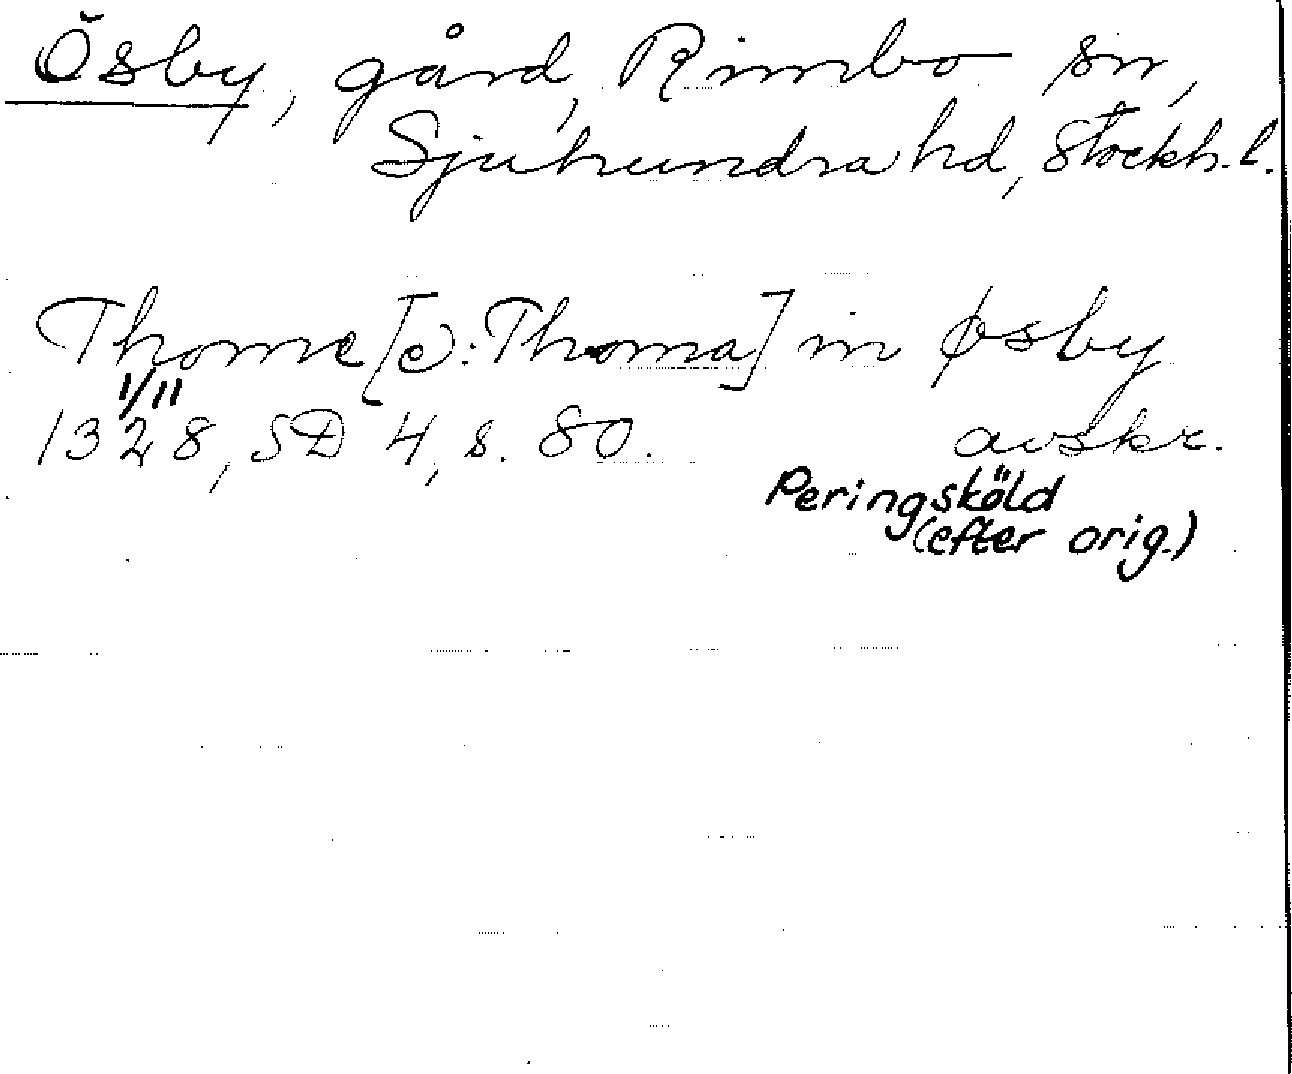 Ösby, gård, Rimbo sn,
Sjuhundra hd, Stockh. l.
Thome [ɔ: Thoma] in øsby
1/11
1328, SD 4, s. 80. avskr.
Peringsköld
(efter orig.)